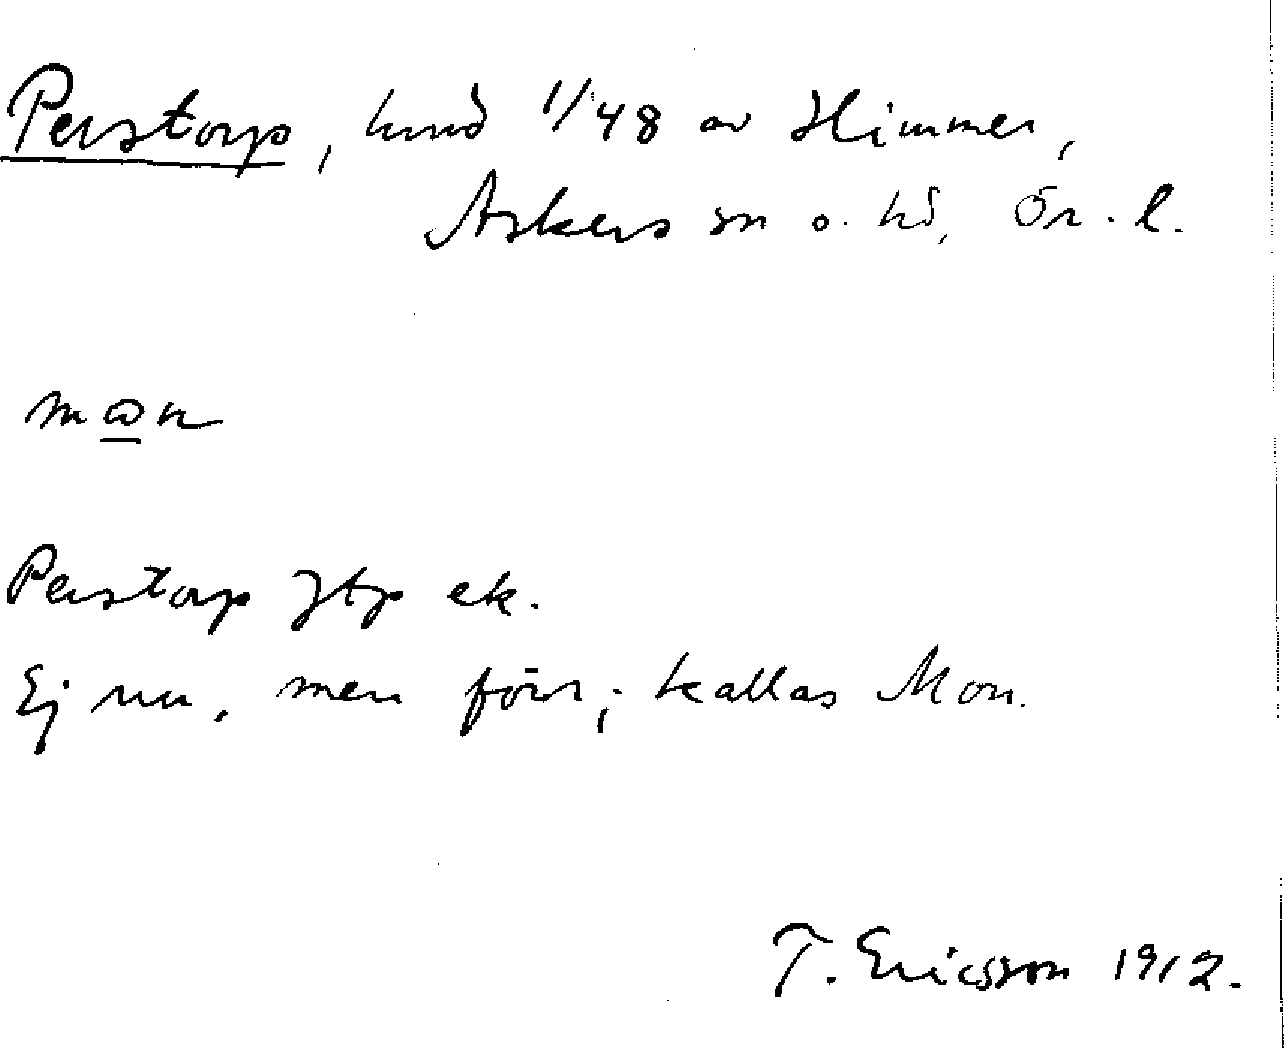 Perstorp, hmd 1/48 av Himmer,
Askers sn o. hd, Ör. l.
Perstorp Jtp ek.
Ej nu, men förr; kallas Mon.
T. Ericsson 1912.